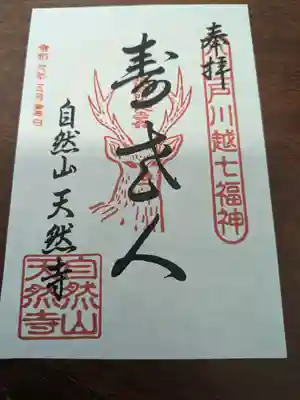 奉拝
川越七福神
寿老人
自然山天然寺
自然山
天然寺